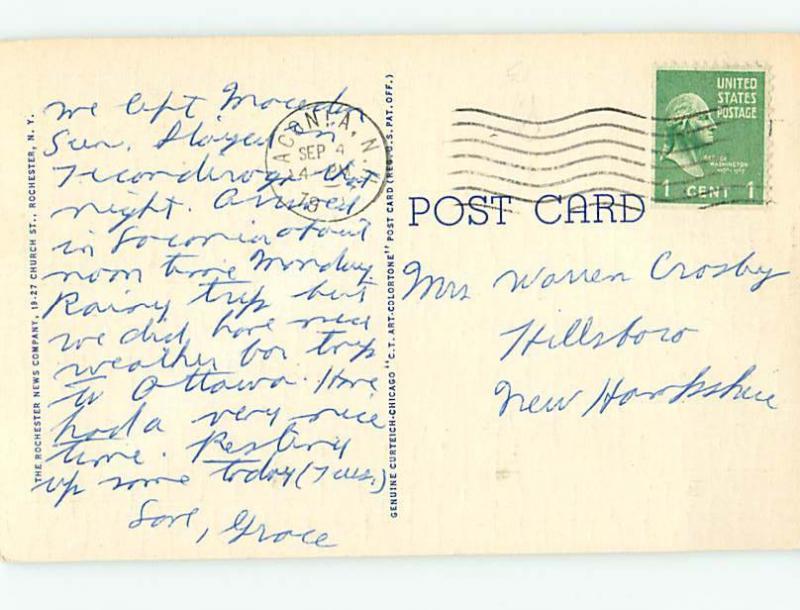 we left Macedon
Sun. Stayed in
Ticonderoga that
night. Arrived
in Laconia about
noon time Monday
Rainy trip but
we did have nice
weather for trip
to Ottawa. Have
had a very nice
time. Resting
up some today (Tues.)
Love, Grace
THE ROCHESTER NEWS COMPANY, 19-27 CHURCH ST., ROCHESTER, N. Y.
GENUINE CURTEICH-CHICAGO "C.T. ART-COLORTONE" POST CARD (REG. U.S. PAT. OFF.)
ACONIA, N.
SEP 4
UNITED
STATES
POSTAGE
WASHINGTON
1 CENT 1
POST CARD
Mrs Warren Crosby
Hillsboro
New Hampshire